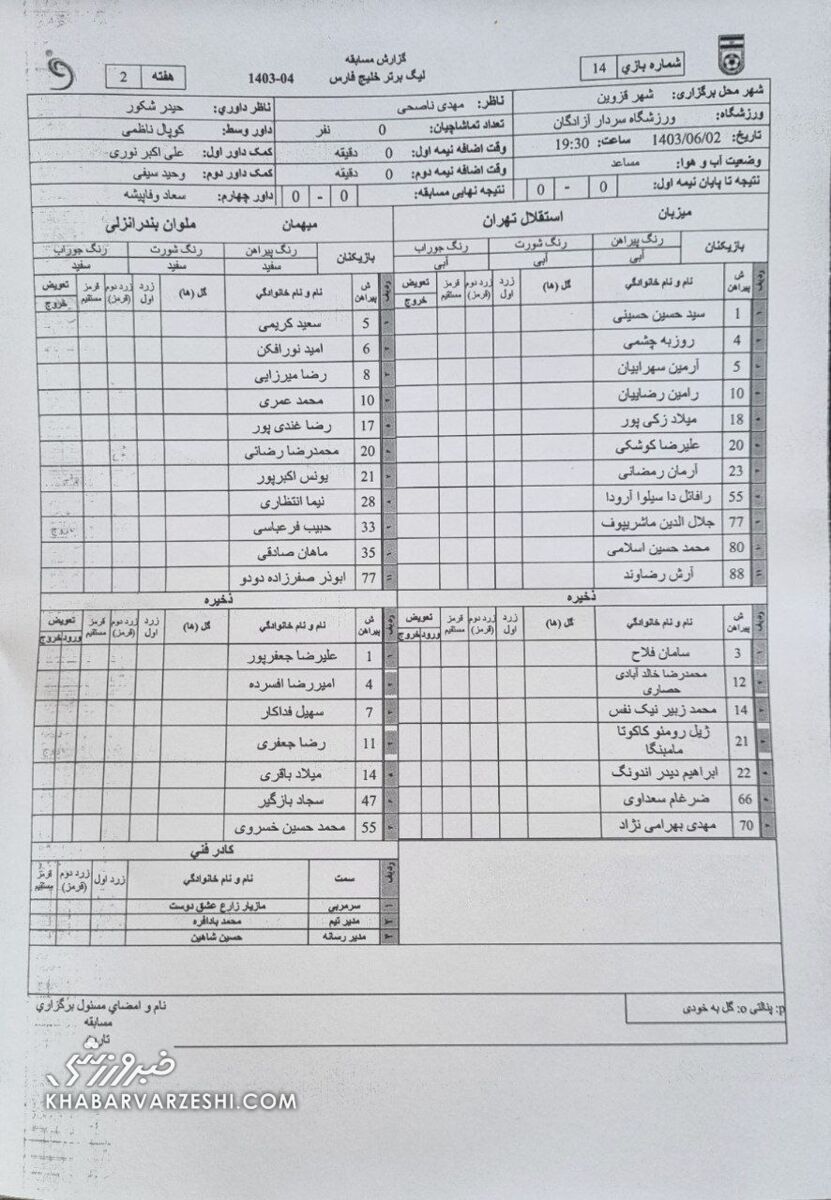 گزارش مسابقه
لیگ برتر خلیج فارس 04-1403
شماره بازي 14
هفته 2
شهر محل برگزاری: شهر قزوین
ورزشگاه: ورزشگاه سردار آزادگان
تاریخ: 1403/06/02 ساعت: 19:30
وضعیت آب و هوا: مساعد
نتیجه تا پایان نیمه اول: 0 - 0
ناظر: مهدی ناصحی
تعداد تماشاچیان: 0 نفر
وقت اضافه نیمه اول: 0 دقیقه
وقت اضافه نیمه دوم: 0 دقیقه
نتیجه نهایی مسابقه: 0 - 0
ناظر داوری: حیدر شکور
داور وسط: کوپال ناظمی
کمک داور اول: علی اکبر نوری
کمک داور دوم: وحید سیفی
داور چهارم: سعاد وفاپیشه
میزبان استقلال تهران
بازیکنان رنگ پیراهن رنگ شورت رنگ جوراب
آبی آبی آبی
ردیف ش پیراهن نام و نام خانوادگي گل (ها) زرد اول زرد دوم (قرمز) قرمز مستقیم تعویض خروج
1 سید حسین حسینی
4 روزبه چشمی
5 آرمین سهرابیان
10 رامین رضاییان
18 میلاد زکی پور
20 علیرضا کوشکی
23 آرمان رمضانی
55 رافائل دا سیلوا آرودا
77 جلال الدین ماشریپوف
80 محمد حسین اسلامی
88 آرش رضاوند
ذخیره
ردیف ش پیراهن نام و نام خانوادگي گل (ها) زرد اول زرد دوم (قرمز) قرمز مستقیم تعویض ورود خروج
3 سامان فلاح
12 محمدرضا خالد آبادی حصاری
14 محمد زبیر نیک نفس
21 ژیل رومئو کاکوتا مامبنگا
22 ابراهیم دیدر اندونگ
66 ضرغام سعداوی
70 مهدی بهرامی نژاد
میهمان ملوان بندرانزلی
بازیکنان رنگ پیراهن رنگ شورت رنگ جوراب
سفید سفید سفید
ردیف ش پیراهن نام و نام خانوادگي گل (ها) زرد اول زرد دوم (قرمز) قرمز مستقیم تعویض خروج
5 سعید کریمی
6 امید نورافکن
8 رضا میرزایی
10 محمد عمری
17 رضا غندی پور
20 محمدرضا رضائی
21 یونس اکبرپور
28 نیما انتظاری
33 حبیب فرعباسی
35 ماهان صادقی
77 ابوذر صفرزاده دودو
ذخیره
ردیف ش پیراهن نام و نام خانوادگي گل (ها) زرد اول زرد دوم (قرمز) قرمز مستقیم تعویض ورود خروج
1 علیرضا جعفرپور
4 امیررضا افسرده
7 سهیل فداکار
11 رضا جعفری
14 میلاد باقری
47 سجاد بازگیر
55 محمد حسین خسروی
کادر فني
ردیف سمت نام و نام خانوادگي زرد اول زرد دوم (قرمز) قرمز مستقیم
1 سرمربی مازیار زارع عشق دوست
2 مدیر تیم محمد بادافره
3 مدیر رسانه حسین شاهین
p: پنالتی o: گل به خودی
نام و امضاي مسئول برگزاري
مسابقه
تاریخ
خبرورزشی
KHABARVARZESHI.COM